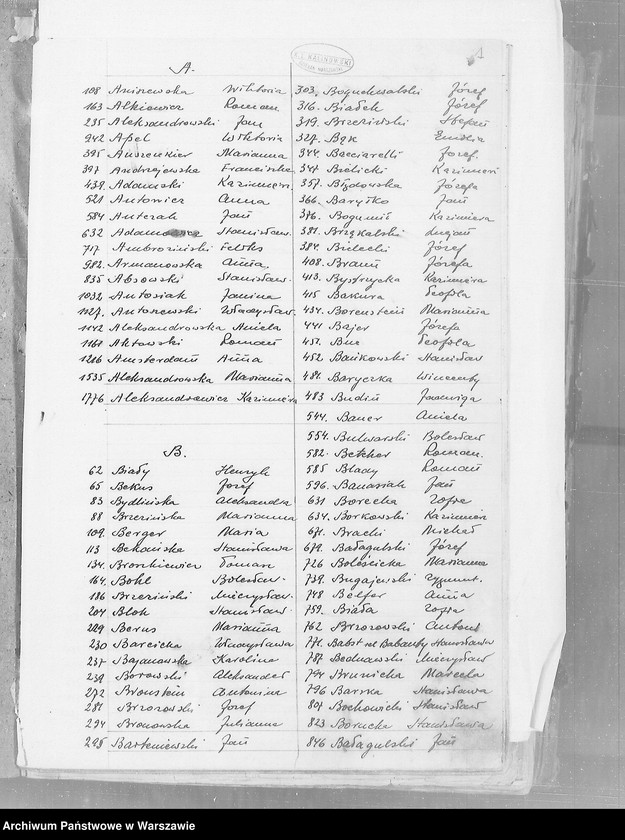 A.
108 Aniszewska Wiktoria
163 Alkiewicz Roman
235 Aleksandrowski Jan
942 Apel Wiktoria
395 Auszenkier Marianna
397 Andrzejewska Franciszka
439. Adamski Kazimierz
521 Antowicz Anna
584 Antczak Jan
632 Stanisław.
717 Ambroziński Feliks
982. Armanowska Anna.
835 Absowski Stanisław.
1032 Antosiak Janina
1127. Antoszewski Władysław.
1142 Aleksandrowska Aniela
1161 Aktowski Roman
1216 Amsterdam Anna
1535 Aleksandrowska Marianna
1776 Aleksandrowicz Kazimiera
B.
62 Biały Henryk
65 Bekus Józef
83 Bydlińska Aleksandra
88 Brzezińska Marianna
109. Berger Maria
113 Stanisława
134. Bronkiewicz Roman
164. Bohl Bolesław.
186 Brzeziński Mieczysław.
204 Blok Stanisław.
229 Berus Marianna
230 Barcicka Władysława
237 Bojanowska Karolina
239 Borowski Aleksander
272 Bronstein Antonina
281 Brzozowski Józef
294 Bronowska Julianna
295 Barteniewski Jan
1
K. J. KALINOWSKI
303. Boguchwalski Józef
316. Białek Józef
319. Brzeziński Stefan
327. Bąk Emilia
344. Bacciarelli Józef.
347 Bielicki Kazimierz
357. Józefa
366. Baryłko Jan
376. Bogumił Kazimiera
381. Brzękalski
384. Bielecki Józef
408. Brann Józefa
413. Bystrzycka Kazimiera
415 Bakura Teofila
434. Borenstein Marianna
441 Bajer Józefa
451. Teofila
452 Bańkowski Stanisław
481. Baryczka Wincenty
483 Budin Jadwiga
544. Bauer Aniela
554. Bulwarski Bolesław
582. Betcher Roman.
585 Blady Roman
596. Banasiak Jan
631 Borecka Zofia
634. Borkowski Kazimierz
671. Bracki Michał
679. Bałagulski Józef
726 Marianna
739. Bugajewski Zygmunt.
748 Belfer Anna
759. Biała Zofia
762 Brzozowski Antoni
771. Babst vel Stanisława
787. Bednawski Mieczysław
794 Marcela
796 Barska Stanisława
801 Bochowicki Stanisław
823 Borucka Stanisława
846 Bałagulski Jan
Archiwum Państwowe w Warszawie